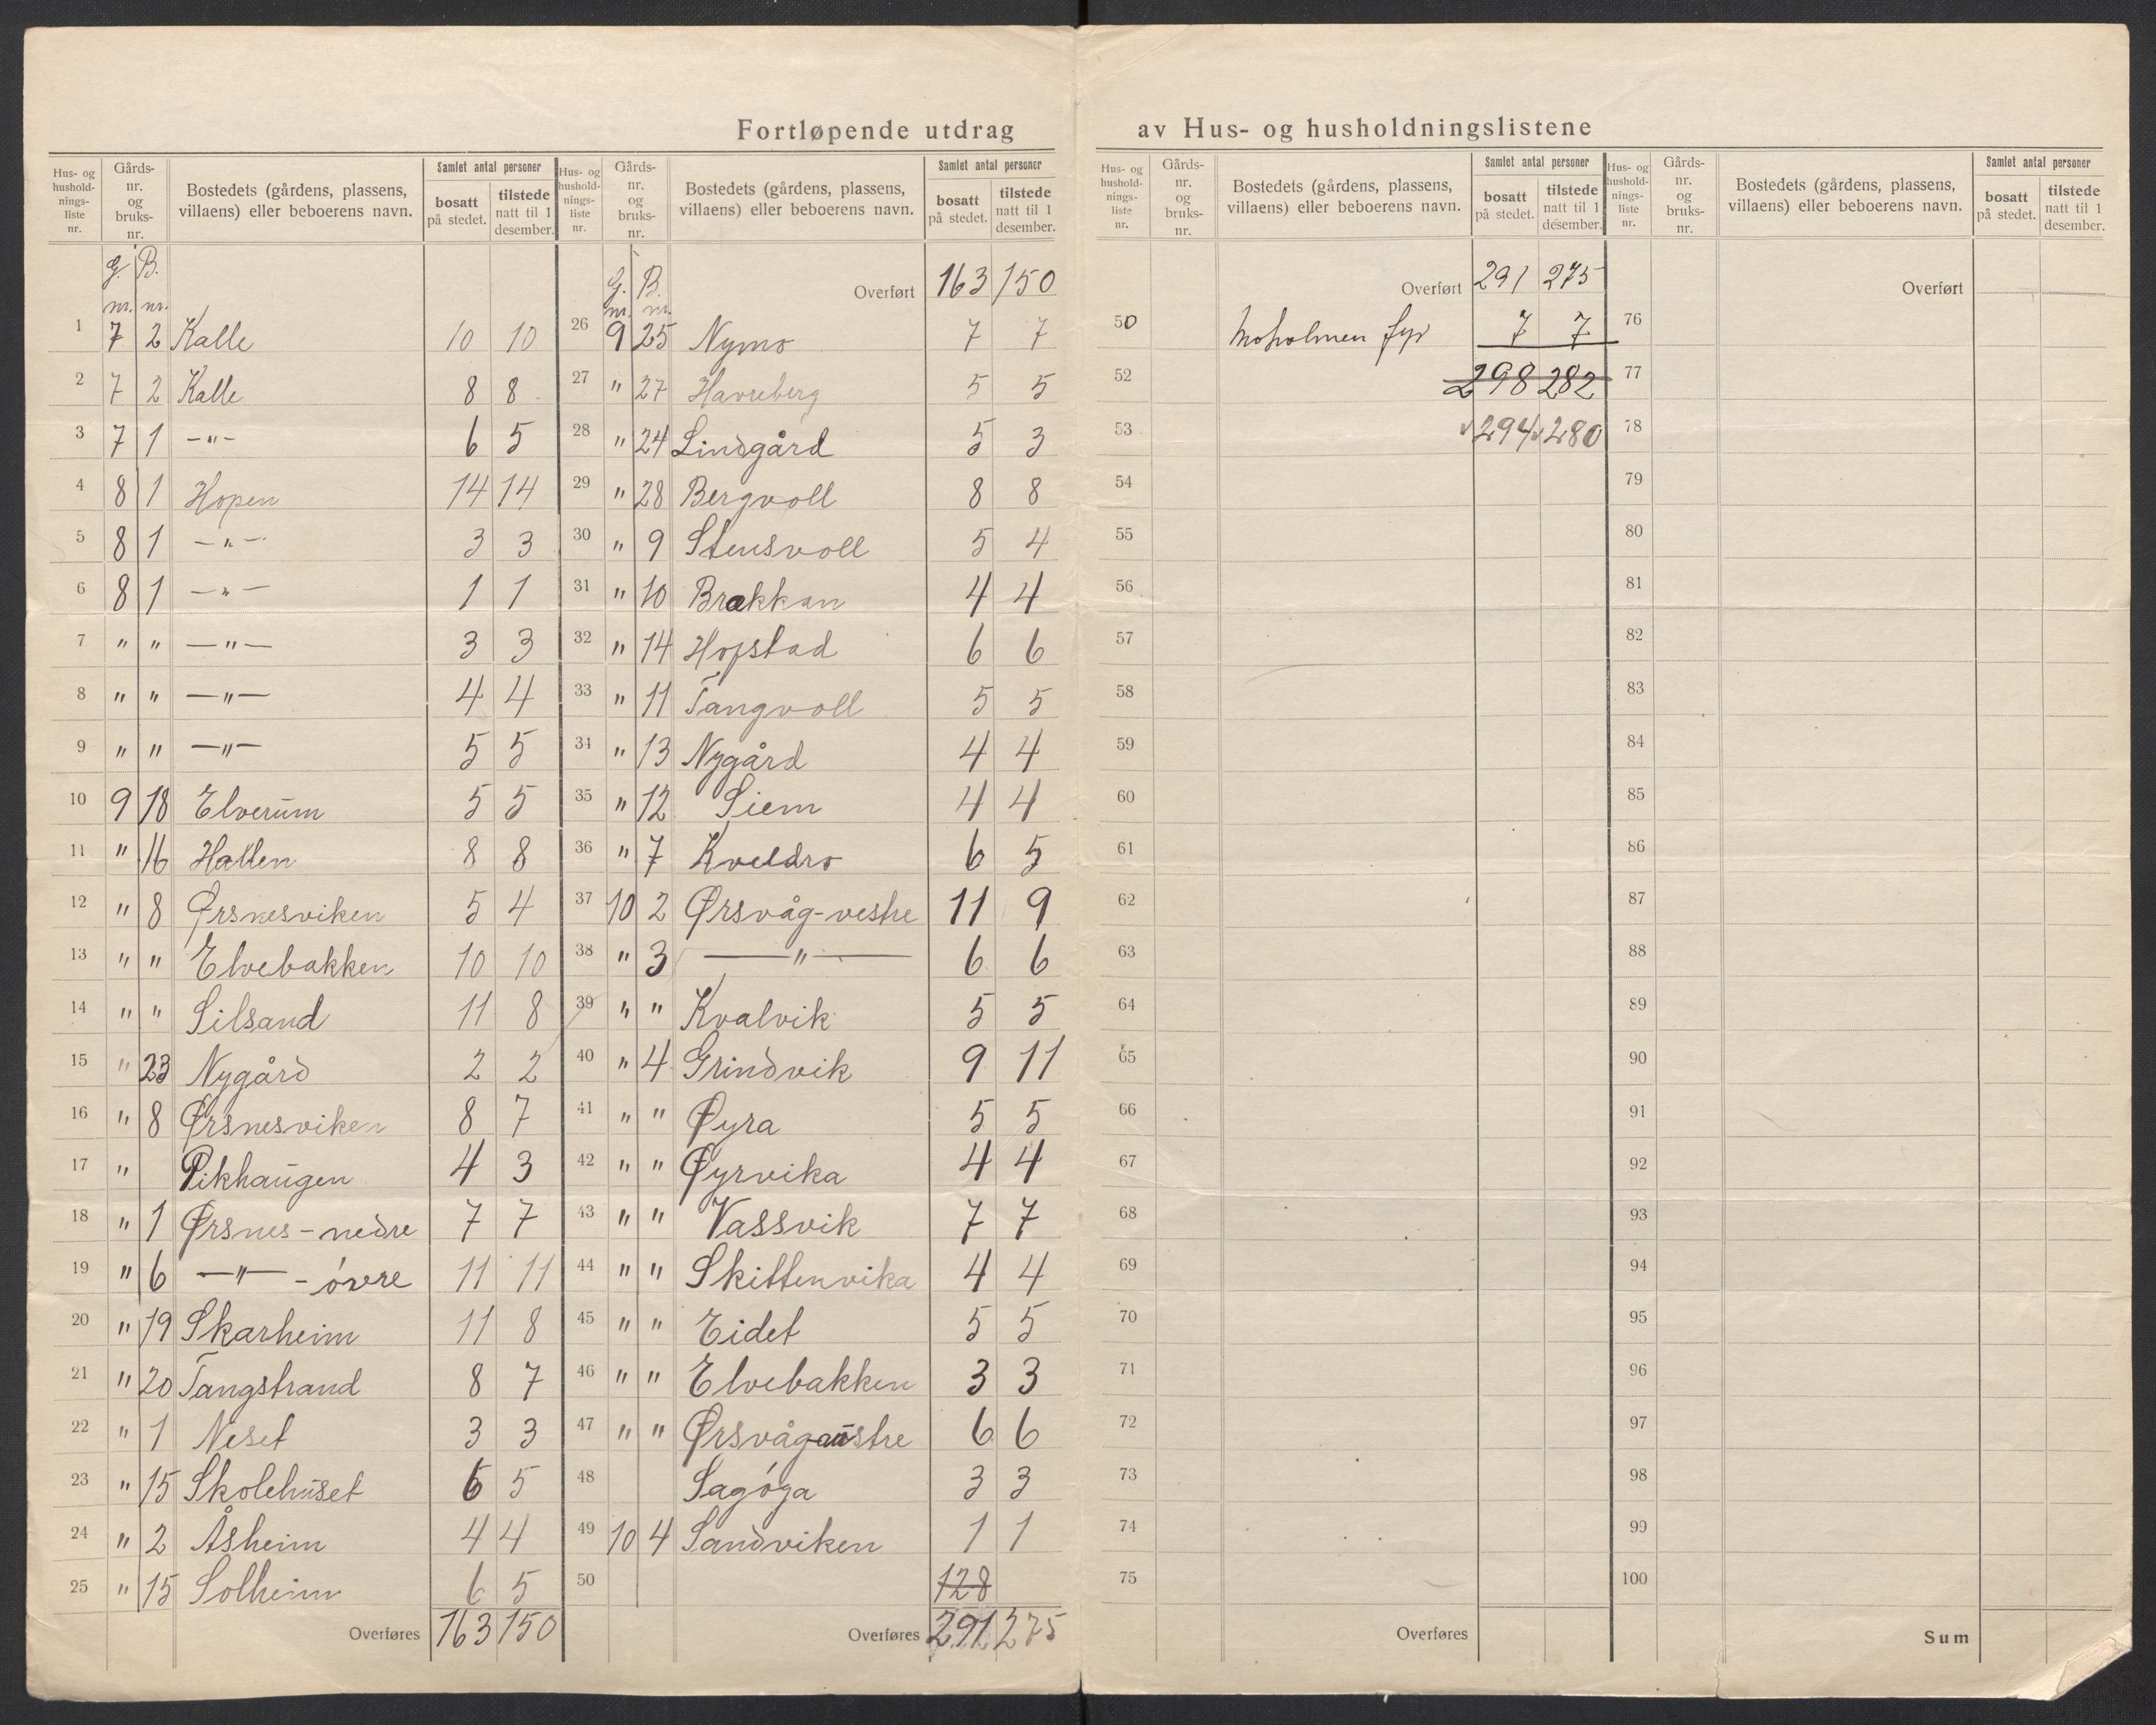 Fortløpende utdrag av Hus- og husholdningslistene
Hus- og hushold-nings-liste nr. Gårds-nr. og bruks-nr. Bostedets (gårdens, plassens, villaens) eller beboerens navn. Samlet antal personer bosatt på stedet. tilstede natt til 1 desember.
G. nr. B. nr.
1 7 2 Kalle 10 10
2 7 2 Kalle 8 8
3 7 1 -"- 6 5
4 8 1 Hopen 14 14
5 8 1 -"- 3 3
6 8 1 -"- 1 1
7 " " -"- 3 3
8 " " -"- 4 4
9 " " -"- 5 5
10 9 18 Elverum 5 5
11 " 16 Hatten 8 8
12 " 8 Ørsnesviken 5 4
13 " " Elvebakken 10 10
14 " " Silsand 11 8
15 " 23 Nygård 2 2
16 " 8 Ørsnesviken 8 7
17 " Pikhaugen 4 3
18 " 1 Ørsnes-nedre 7 7
19 " 6 -"- -óvre 11 11
20 " 19 Skarheim 11 8
21 " 20 Tangstrand 8 7
22 " 1 Neset 3 3
23 " 15 Skolehuset 6 5
24 " 2 Åsheim 4 4
25 " 15 Solheim 6 5
Overføres 163 150
Hus- og hushold-nings-liste nr. Gårds-nr. og bruks-nr. Bostedets (gårdens, plassens, villaens) eller beboerens navn. Samlet antal personer bosatt på stedet. tilstede natt til 1 desember.
G. nr. B. nr. Overført 163 150
26 9 25 Nymo 7 7
27 " 27 Havreberg 5 5
28 " 24 Lindgård 5 3
29 " 28 Bergvoll 8 8
30 " 9 Stensvoll 5 4
31 " 10 Brekkan 4 4
32 " 14 Hopstad 6 6
33 " 11 Tangvoll 5 5
34 " 13 Nygård 4 4
35 " 12 Siem 4 4
36 " 7 Kveldro 6 5
37 10 2 Ørsvåg-vestre 11 9
38 " 3 -"- 6 6
39 " " Kvalvik 5 5
40 " 4 Grindvik 9 11
41 " " Øyra 5 5
42 " " Øyrvika 4 4
43 " " Vassvik 7 7
44 " " Skittenvika 4 4
45 " " Eidet 5 5
46 " " Elvebakken 3 3
47 " " Ørsvågaustre 6 6
48 Sagóga 3 3
49 10 4 Sandviken 1 1
50 128
Overføres 291 275
Hus- og hushold-nings-liste nr. Gårds-nr. og bruks-nr. Bostedets (gårdens, plassens, villaens) eller beboerens navn. Samlet antal personer bosatt på stedet. tilstede natt til 1 desember.
Overført 291 275
50 Moholmen fyr 7 7
52 298 282
53 294 280
54
55
56
57
58
59
60
61
62
63
64
65
66
67
68
69
70
71
72
73
74
75
Overføres
Hus- og hushold-nings-liste nr. Gårds-nr. og bruks-nr. Bostedets (gårdens, plassens, villaens) eller beboerens navn. Samlet antal personer bosatt på stedet. tilstede natt til 1 desember.
Overført
76
77
78
79
80
81
82
83
84
85
86
87
88
89
90
91
92
93
94
95
96
97
98
99
100
Sum